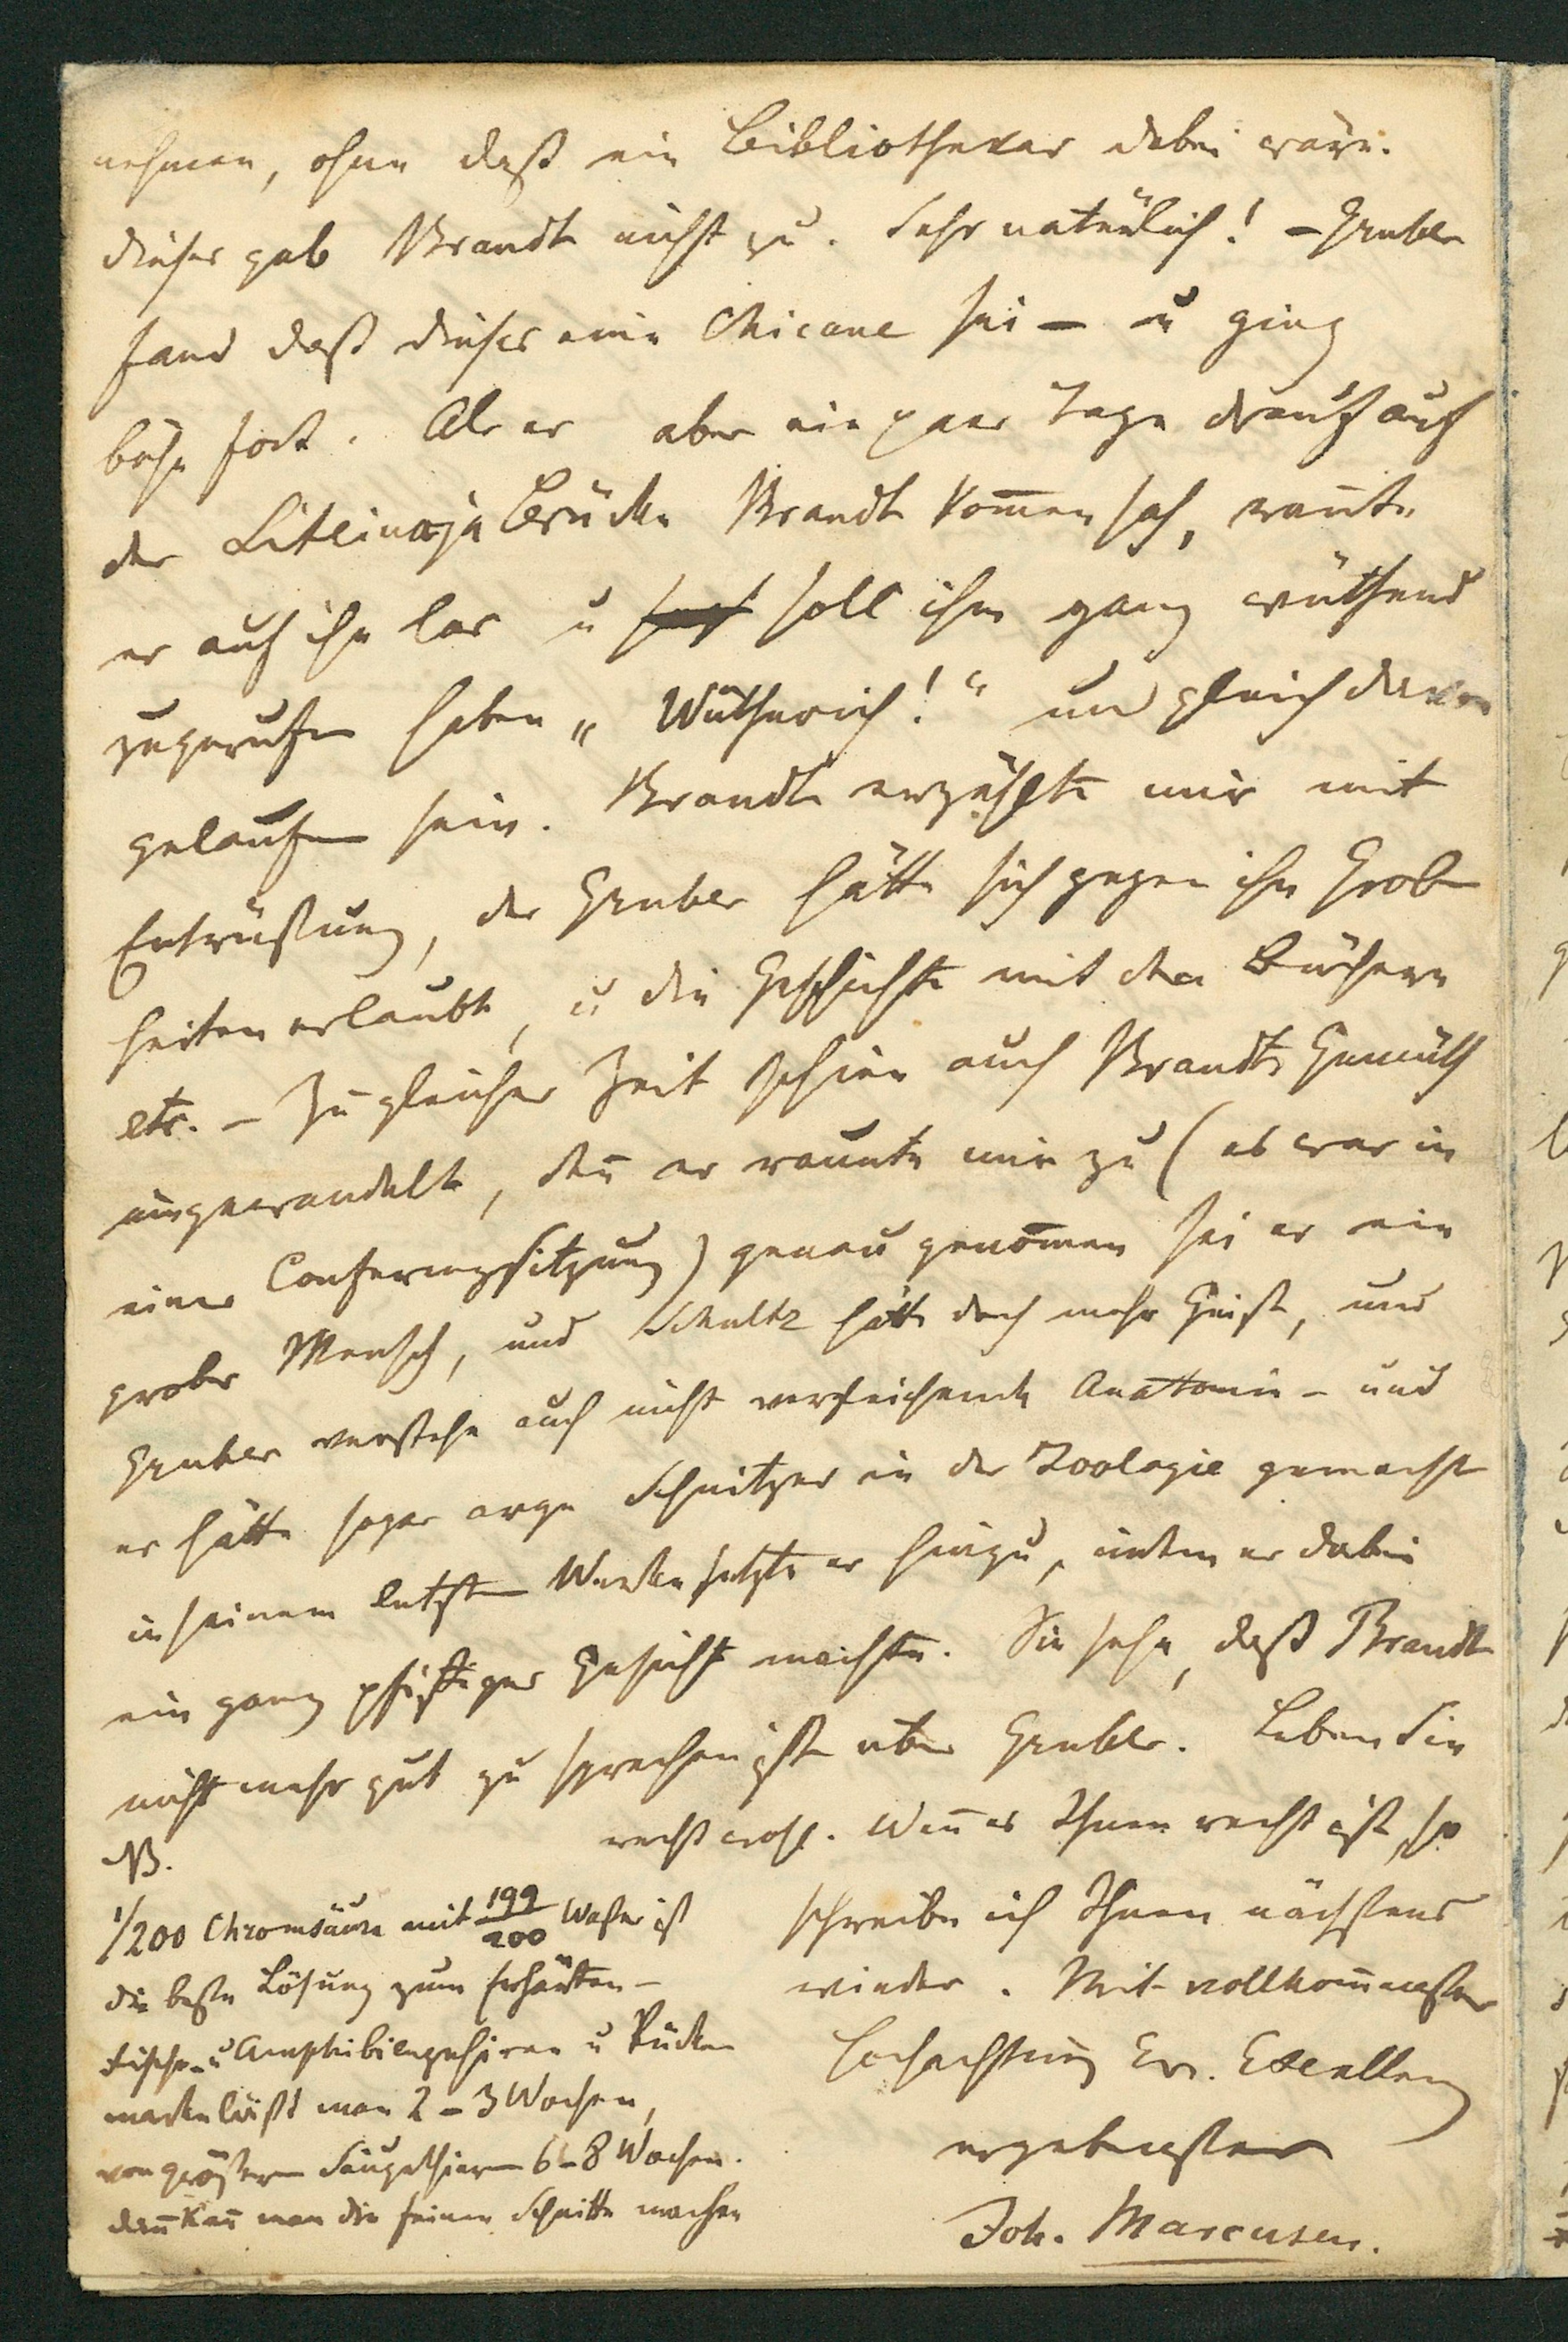 nehmen, ohne daß ein Bibliothekar dabei wäre.
dieses gab Brandt nicht zu. Sehr natürlich! – Gruber
fand daß dieses eine Chicane sei – u ging
böse fort. Als er aber ein paar Tage drauf auf
der Liteinaja Brücke Brandt kom̅en sah, rannte
er auf ihn los u soll ihm ganz wüthend
zugerufen haben „Wütherich!“ und gleich davon
gelaufen sein. Brandt erzählte mir mit
Entrüstung, der Gruber hätte sich gegen ihn Grob
heiten erlaubt, u die Geschichte mit den Büchern
etc. – Zu gleicher Zeit schien auch Brandts Gemüth
umgewandelt, den̅ er raunte mir zu (es war in
einer Conferenzsitzung) genau genom̅en sei er ein
grober Mensch, und Schultz hätte doch mehr Geist, und
Gruber verstehe auch nicht vergleichende Anatomie – und
er hätte sogar arge Schnitzer in der Zoologie gemacht
in seinem letzten Werke setzte er hinzu, indem er dabei
ein ganz pfiffiges Gesicht machte. Sie sehn, daß Brandt
nicht mehr gut zu sprechen ist über Gruber. Leben Sie
recht wohl. Wen̅ es Ihnen recht ist, so
schreibe ich Ihnen nächstens
wieder. Mit vollkom̅enster
Hochachtung Ew. Excellenz
ergebenster
Joh. Marcusen.
NB.
1/200 Chromsäure mit 199/200 Waßer ist
die beste Lösung zum Erhärten –
Fische- u Amphibiengehirne u Rücken
marke läßt man 2 – 3 Wochen,
von größern Säugethieren 6 – 8 Wochen.
dan̅ kan̅ man die feinen Schnitte machen